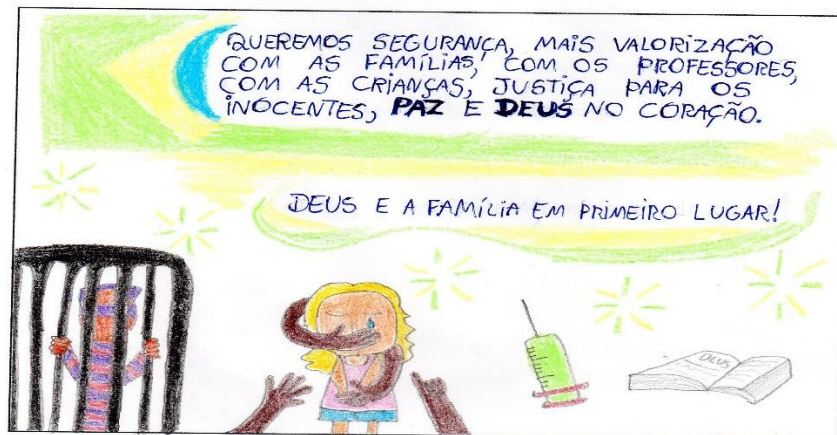 QUEREMOS SEGURANÇA, MAIS VALORIZAÇÃO
COM AS FAMÍLIAS, COM OS PROFESSORES,
COM AS CRIANÇAS, JUSTIÇA PARA OS
INOCENTES, PAZ E DEUS NO CORAÇÃO.
DEUS E A FAMÍLIA EM PRIMEIRO LUGAR!
DEUS